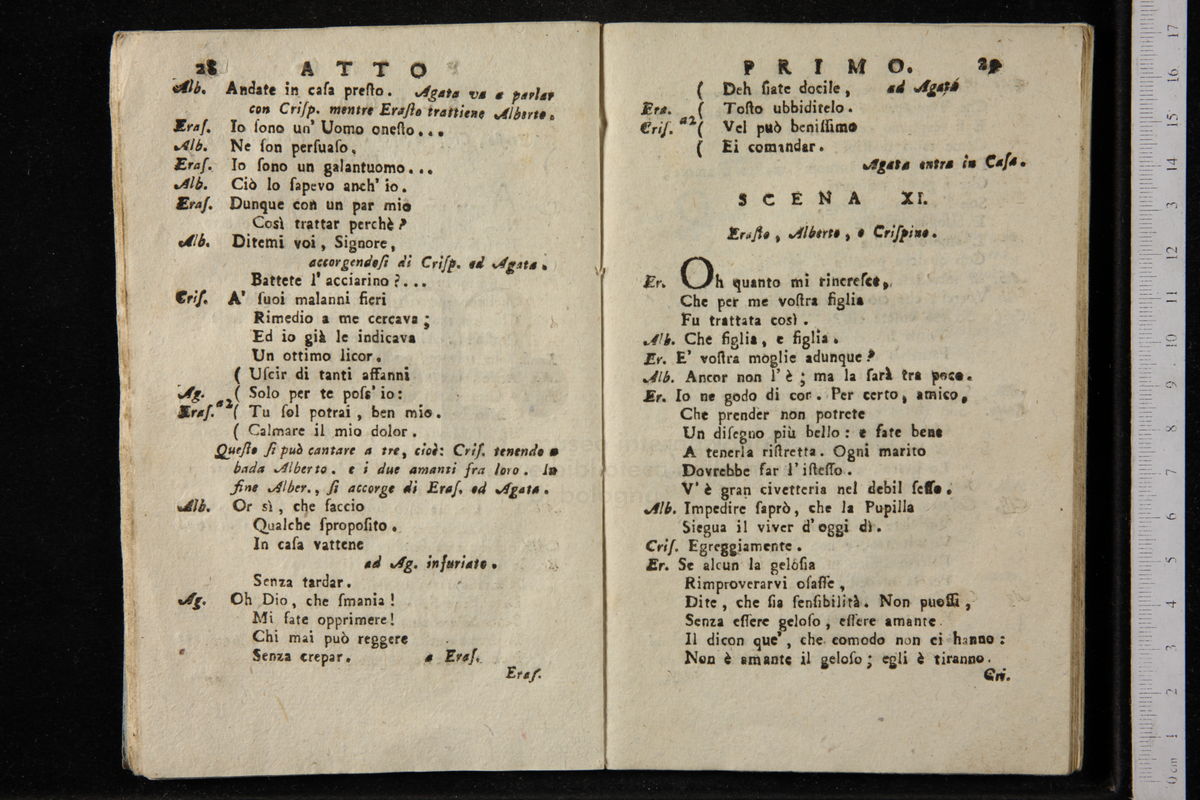 28 ATTO
Alb. Andate in caſa preſto. Agata va a parlar
con Criſp. mentre Eraſto trattiene Alberto.
Eraſ. Io ſono un' Uomo oneſto...
Alb. Ne ſon perſuaſo.
Eraſ. Io ſono un galantuomo...
Alb. Ciò lo ſapevo anch' io.
Eraſ. Dunque con un par mio
Così trattar perchè?
Alb. Ditemi voi, Signore,
accorgendoſi di Criſp. ed Agata.
Battete l' acciarino?...
Criſ. A' ſuoi malanni fieri
Rimedio a me cercava;
Ed io già le indicava
Un ottimo licor.
( Uſcir di tanti affanni
Ag. ( Solo per te poſs' io:
Eraſ. a2 ( Tu ſol potrai, ben mio.
( Calmare il mio dolor.
Queſto ſi può cantare a tre, cioè: Criſ. tenendo a
bada Alberto. e i due amanti fra loro. In
fine Alber., ſi accorge di Eraſ. ed Agata.
Alb. Or sì, che faccio
Qualche ſpropoſito.
In caſa vattene
ad Ag. infuriato.
Senza tardar.
Ag. Oh Dio, che ſmania!
Mi fate opprimere!
Chi mai può reggere
Senza crepar. a Eraſ.
Eraſ.
PRIMO. 29
( Deh ſiate docile, ad Agata
Era. ( Toſto ubbiditelo.
Criſ. a2 ( Vel può beniſſimo
( Ei comandar.
Agata entra in Caſa.
SCENA XI.
Eraſto, Alberto, e Criſpino.
Er. Oh quanto mi rincreſce,
Che per me voſtra figlia
Fu trattata così.
Alb. Che figlia, e figlia.
Er. E' voſtra moglie adunque?
Alb. Ancor non l' è; ma la ſarà tra poco.
Er. Io ne godo di cor. Per certo, amico,
Che prender non potrete
Un diſegno più bello: e fate bene
A tenerla riſtretta. Ogni marito
Dovrebbe far l' iſteſſo.
V' è gran civetteria nel debil ſeſſo.
Alb. Impedire ſaprò, che la Pupilla
Siegua il viver d' oggi dì.
Criſ. Egreggiamente.
Er. Se alcun la geloſia
Rimproverarvi oſaſſe,
Dite, che ſia ſenſibilità. Non puoſſi,
Senza eſſere geloſo, eſſere amante
Il dicon que', che comodo non ci hanno:
Non è amante il geloſo; egli è tiranno.
Cri.
0 cm 1 2 3 4 5 6 7 8 9 10 11 12 13 14 15 16 17